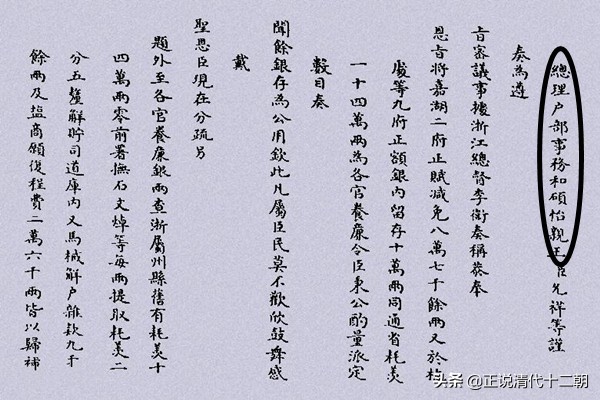 總理户部事務和碩怡親王臣允祥等謹
奏為遵
旨審議事據浙江總督李衛奏稱恭奉
恩旨將嘉湖二府正賦減免八萬七千餘兩又於杭
嚴等九府正額銀内留存十萬兩同通省耗羨
一十四萬兩為各官養廉令臣秉公酌量派定
數目奏
聞餘銀存為公用欽此凡屬臣民莫不歡欣鼓舞感
戴
聖恩臣現在分疏另
題外至各官養廉銀兩查浙屬州縣舊有耗羨十
四萬兩零前署撫石文焯等每兩提取耗羨二
分五釐解貯司道庫内又馬械解户雜欵九千
餘兩及塩商願復程費二萬六千兩皆以歸補
头条 @正说清代十二朝